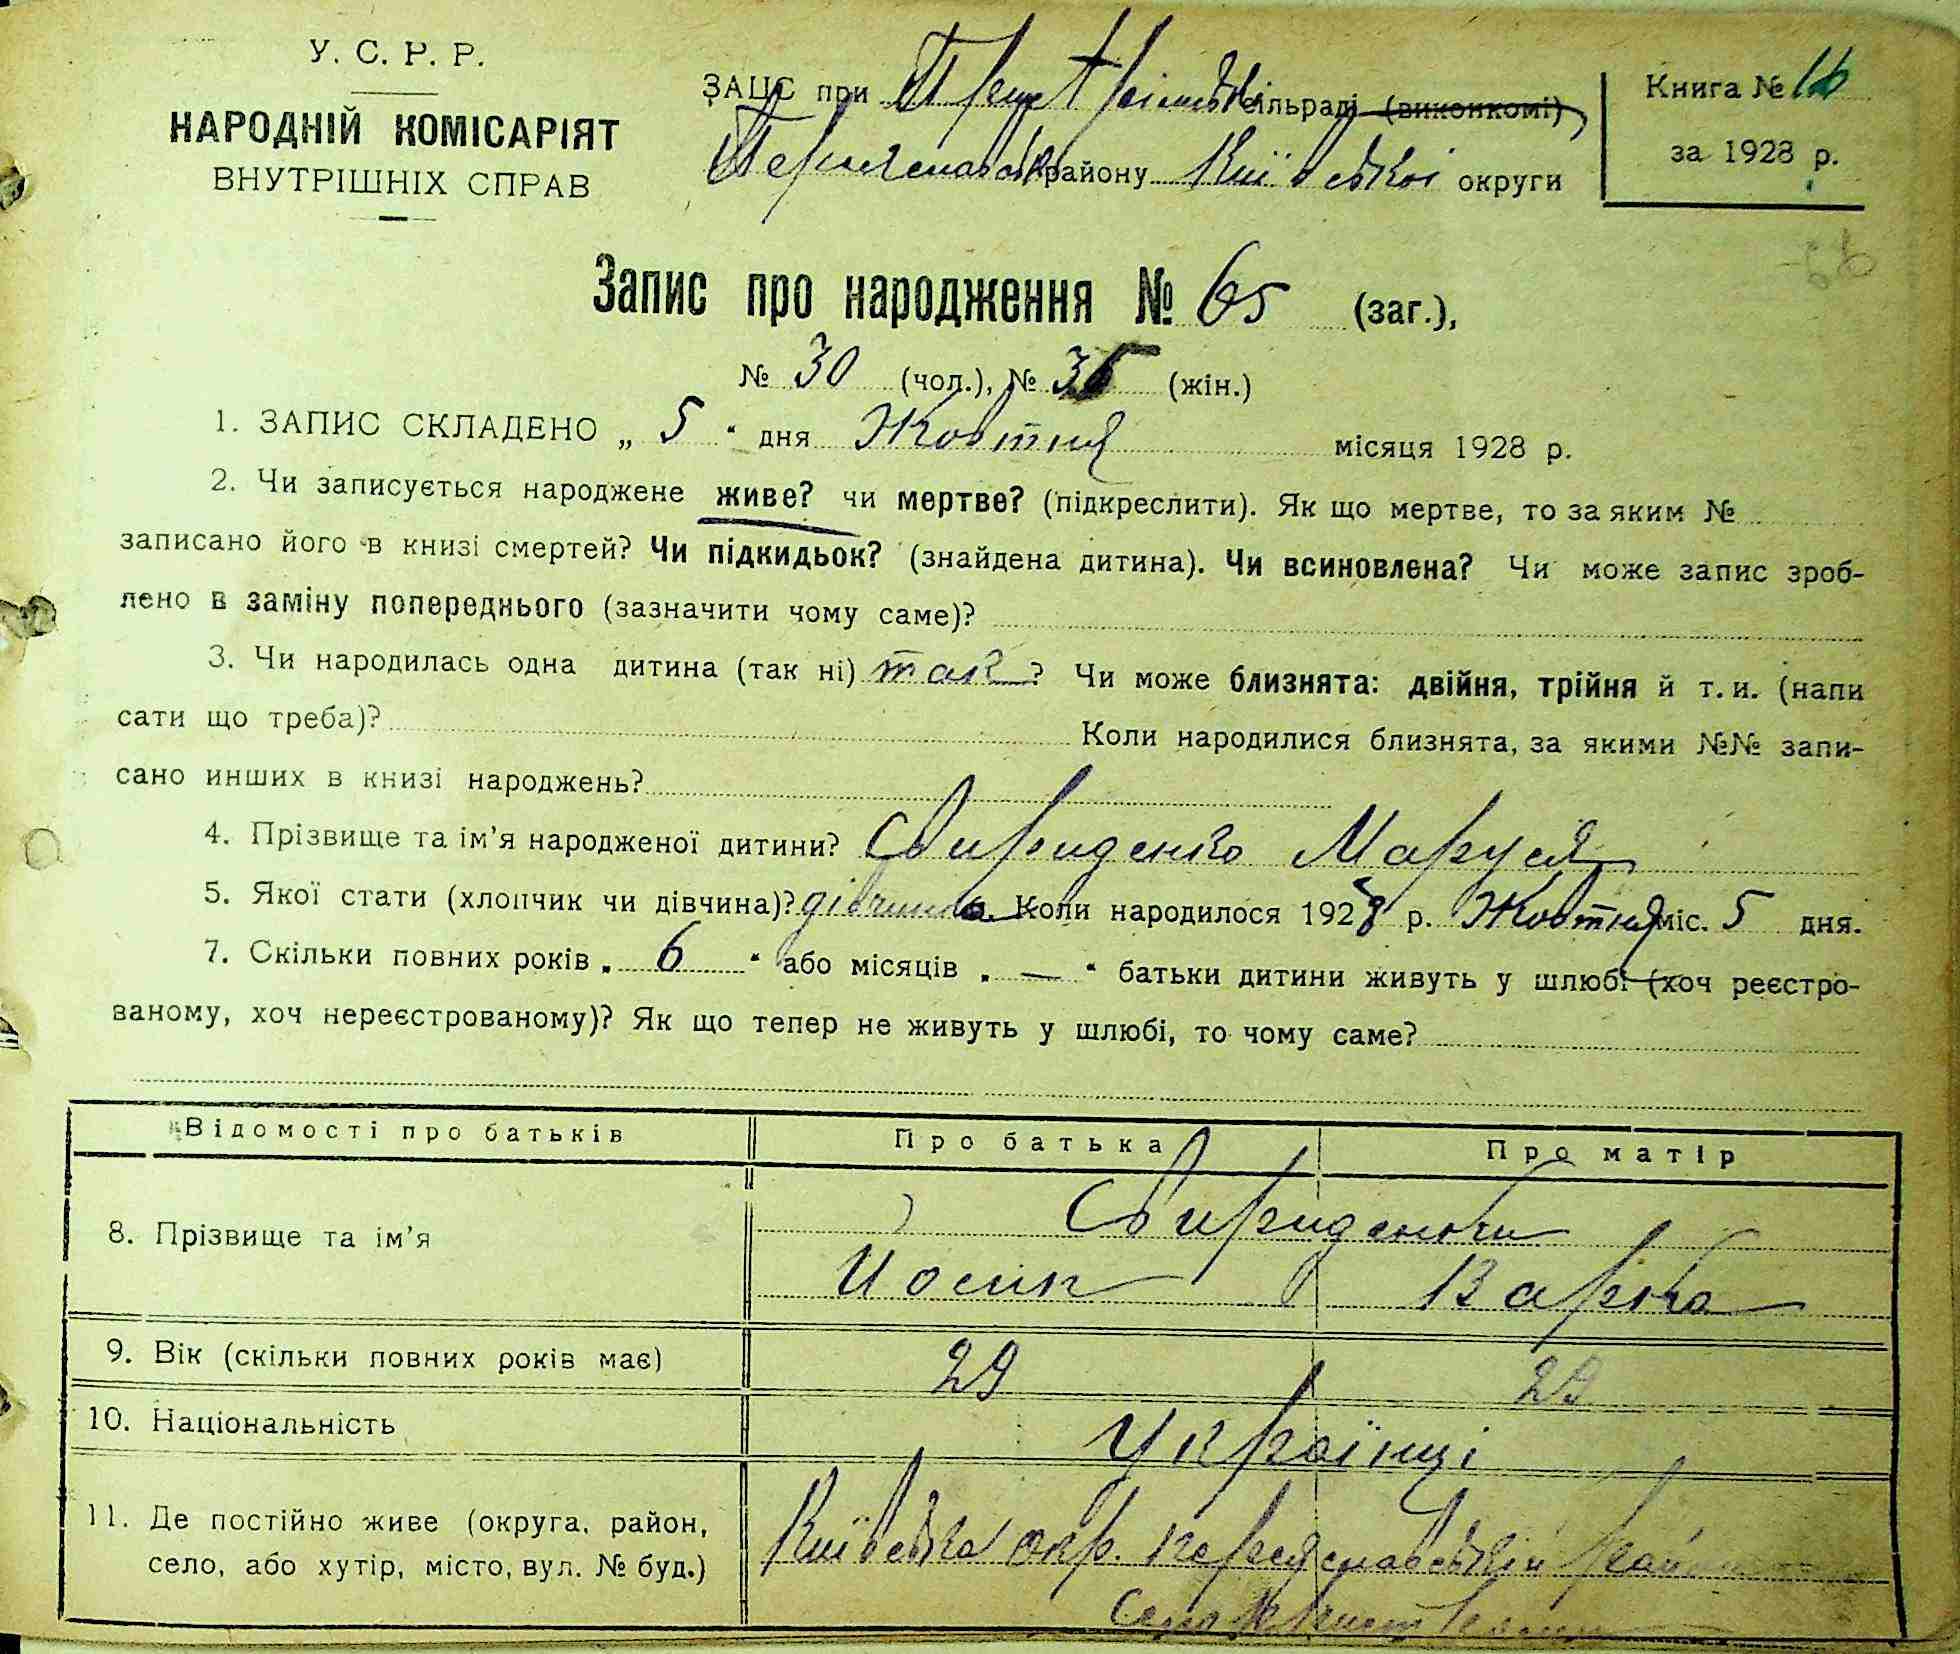 У. С. Р. Р.
НАРОДНІЙ КОМІСАРІЯТ
ВНУТРІШНІХ СПРАВ
ЗАЦС при сільраді (виконкомі)
району Київської округи
Книга № 16
за 1928 р.
Запис про народження № 65 (заг.),
№ 30 (чол.), № 35 (жін.)
1. ЗАПИС СКЛАДЕНО „ 5 “ дня Жовтня місяця 1928 р.
2. Чи записується народжене живе? чи мертве? (підкреслити). Як що мертве, то за яким №
записано його в книзі смертей? Чи підкидьок? (знайдена дитина). Чи всиновлена? Чи може запис зроб-
лено в заміну попереднього (зазначити чому саме)?
3. Чи народилась одна дитина (так ні) так? Чи може близнята: двійня, трійня й т. и. (напи
сати що треба)? Коли народилися близнята, за якими №№ запи-
сано инших в книзі народжень?
4. Прізвище та ім’я народженої дитини? Свириденко Маруся
5. Якої стати (хлопчик чи дівчина)? дівчина 6. Коли народилося 1928 р. Жовтня міс. 5 дня.
7. Скільки повних років „ 6 “ або місяців „ — “ батьки дитини живуть у шлюбі (хоч реєстро-
ваному, хоч нереєстрованому)? Як що тепер не живуть у шлюбі, то чому саме?
Відомості про батьків Про батька Про матір
8. Прізвище та ім’я Свириденки
Йосип Варка
9. Вік (скільки повних років має) 29 29
10. Національність Українці
11. Де постійно живе (округа, район, Київська окр. Переяславський район
село, або хутір, місто, вул. № буд.) Село